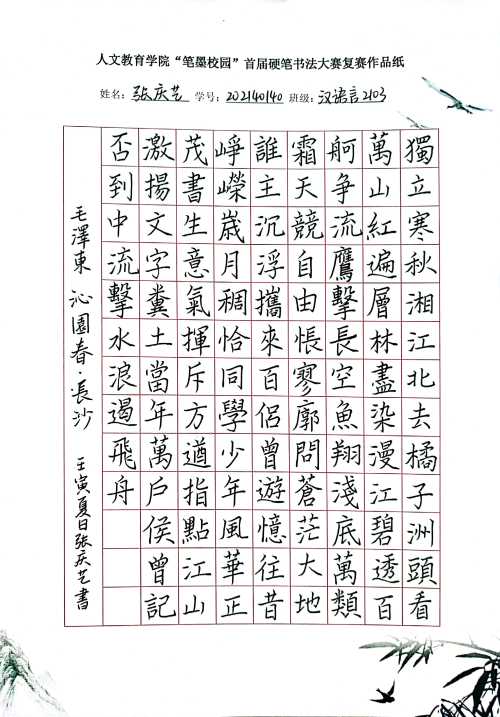 人文教育学院“笔墨校园”首届硬笔书法大赛复赛作品纸
姓名：张庆艺 学号：202140140 班级：汉语言2103
獨立寒秋湘江北去橘子洲頭看
萬山紅遍層林盡染漫江碧透百
舸争流鷹擊長空魚翔淺底萬類
霜天競自由悵寥廓問蒼茫大地
誰主沉浮攜來百侣曾遊憶往昔
崢嶸歳月稠恰同學少年風華正
茂書生意氣揮斥方遒指點江山
激揚文字糞土當年萬户侯曾記
否到中流擊水浪遏飛舟
毛澤東 沁園春·長沙 壬寅夏日张庆艺書